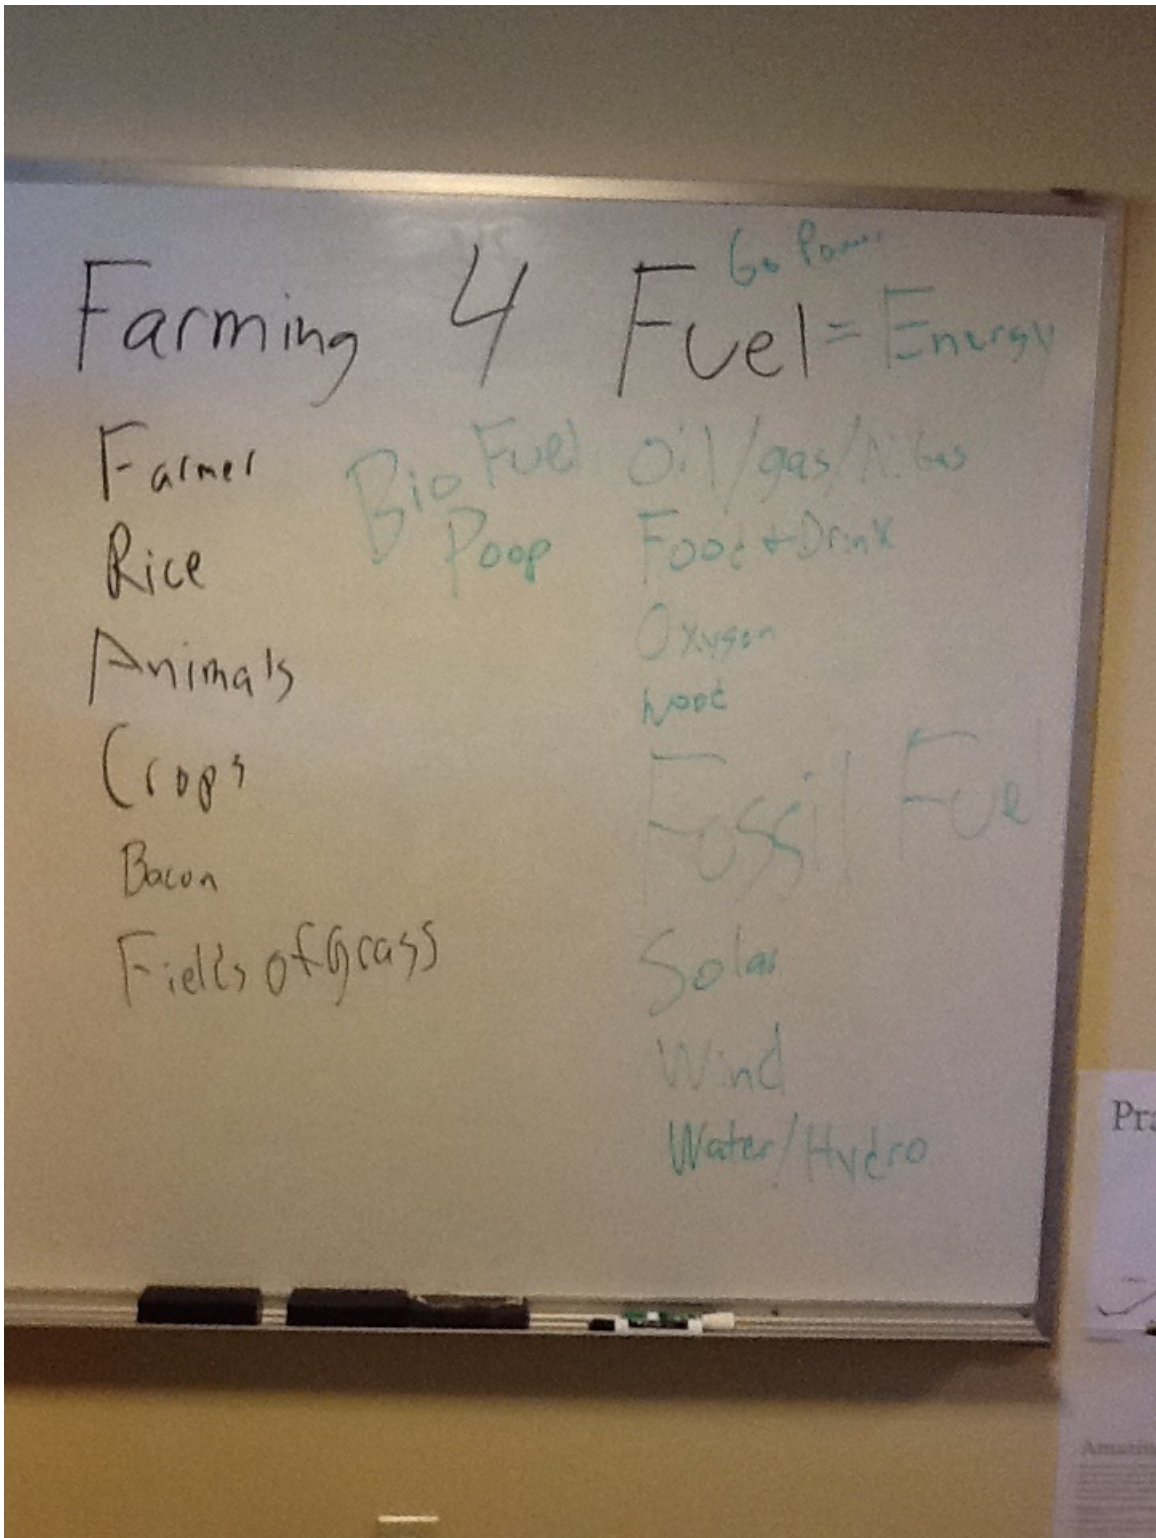 Go Power
Farming 4 Fuel = Energy
Farmer
Rice
Animals
Crops
Bacon
Fields of Grass
Bio Fuel
Poop
Oil/gas/N.Gas
Food + Drink
Oxygen
Wood
Fossil Fuel
Solar
Wind
Water/Hydro
Pra
Amazin